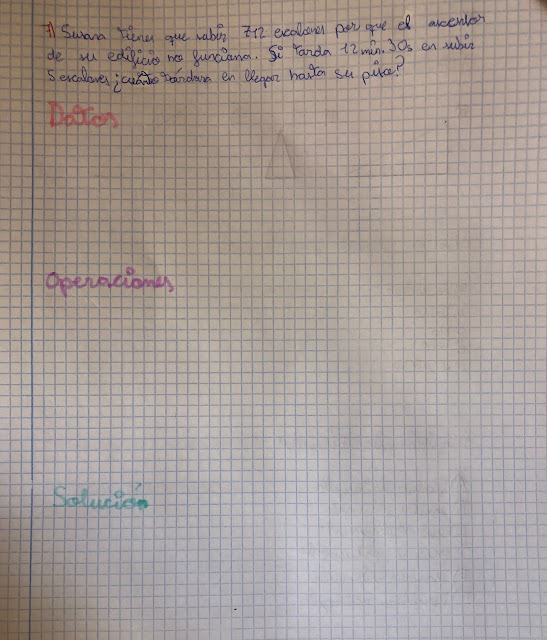 7) Susana tiene que subir 712 escalones por que el ascensor
de su edificio no funciona. Si tarda 12 min. 30s en subir
5 escalones ¿cuánto tardara en llegar hasta su piso?
Datos
Operaciones
Solución